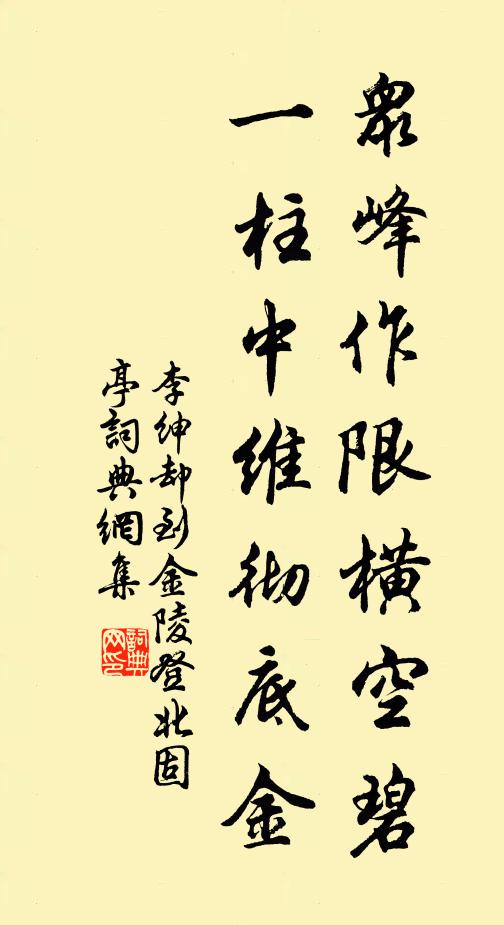 眾峰作限橫空碧
一柱中維彻底金
李紳却到金陵登北固
亭詞典網集
詞典
网印